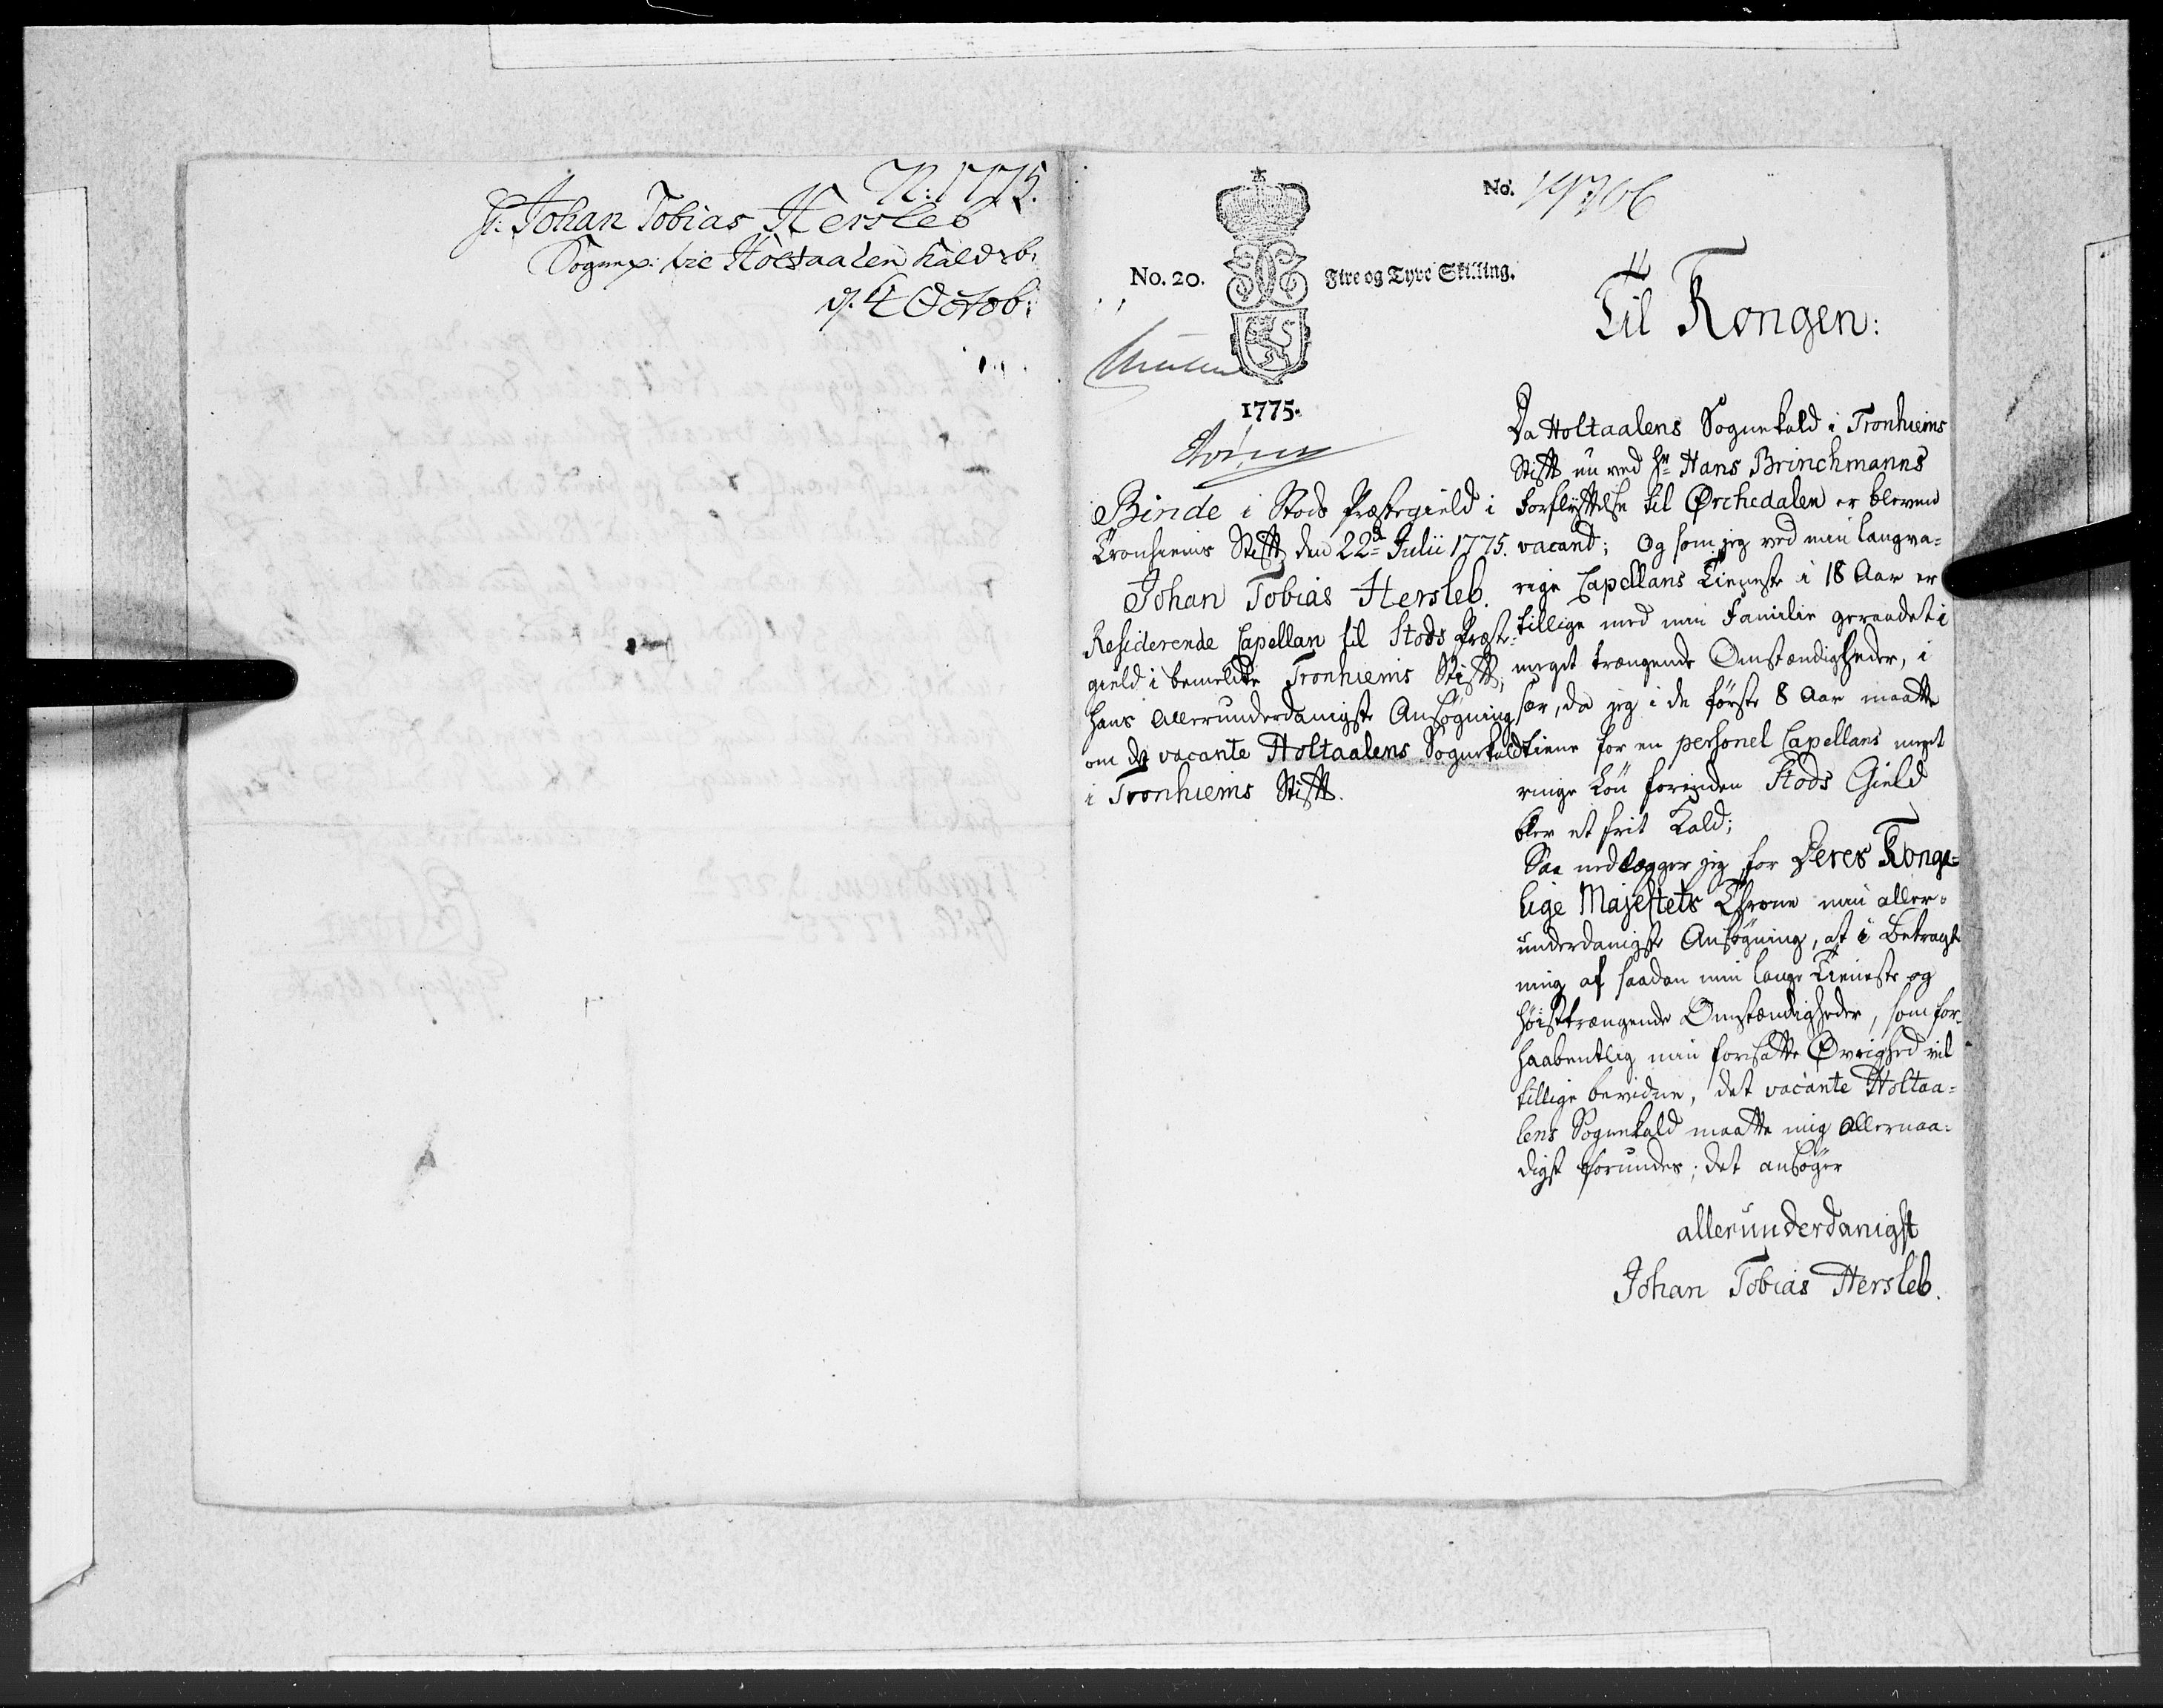 N: 1775.
Hr: Johan Tobias Hersleb
Sognepr: til Holtaalen Kald
d. 4 Octob:
No. 19706
No. 20. Fire og Tyve Skilling.
1775.
Binde i Stods Præstegield i
Tronhiems Stift, den 22d Julii 1775.
Johan Tobias Hersleb.
Residerende Capellan til Stods Præste-
gield i bemeldte Tronhiems Stift,
hans allerunderdanigste Ansøgning
om det vacante Holtaalens Sognekald
i Tronhiems Stift.
Til Kongen:
Da Holtaalens Sognekald i Tronhiems
Stift nu ved Hr Hans Brinchmanns
Forflyttelse til Ørchedalen er bleven
vacant; Og som jeg ved min langva-
rige Capellans Tieneste i 18 Aar er
tillige med min Familie geraadet i
meget trængende Omstændigheder, i
sær, da jeg i de første 8 Aar maatte
tiene for en personel Capellans meget
ringe Løn forinden Stods Gield
blev et frit Kald;
Saa nedlægger jeg for Deres Konge-
lige Majestets Throne min aller-
underdanigste Ansøgning, at i Betragt-
ning af saadan min lange Tieneste og
høisttrængende Omstændigheder, som for-
haabentlig min foresatte Øvrighed vil
tillige bevidne, det vacante Holtaa-
lens Sognekald maatte mig allernaa-
digst forundes; det ansøger
allerunderdanigst
Johan Tobias Hersleb.